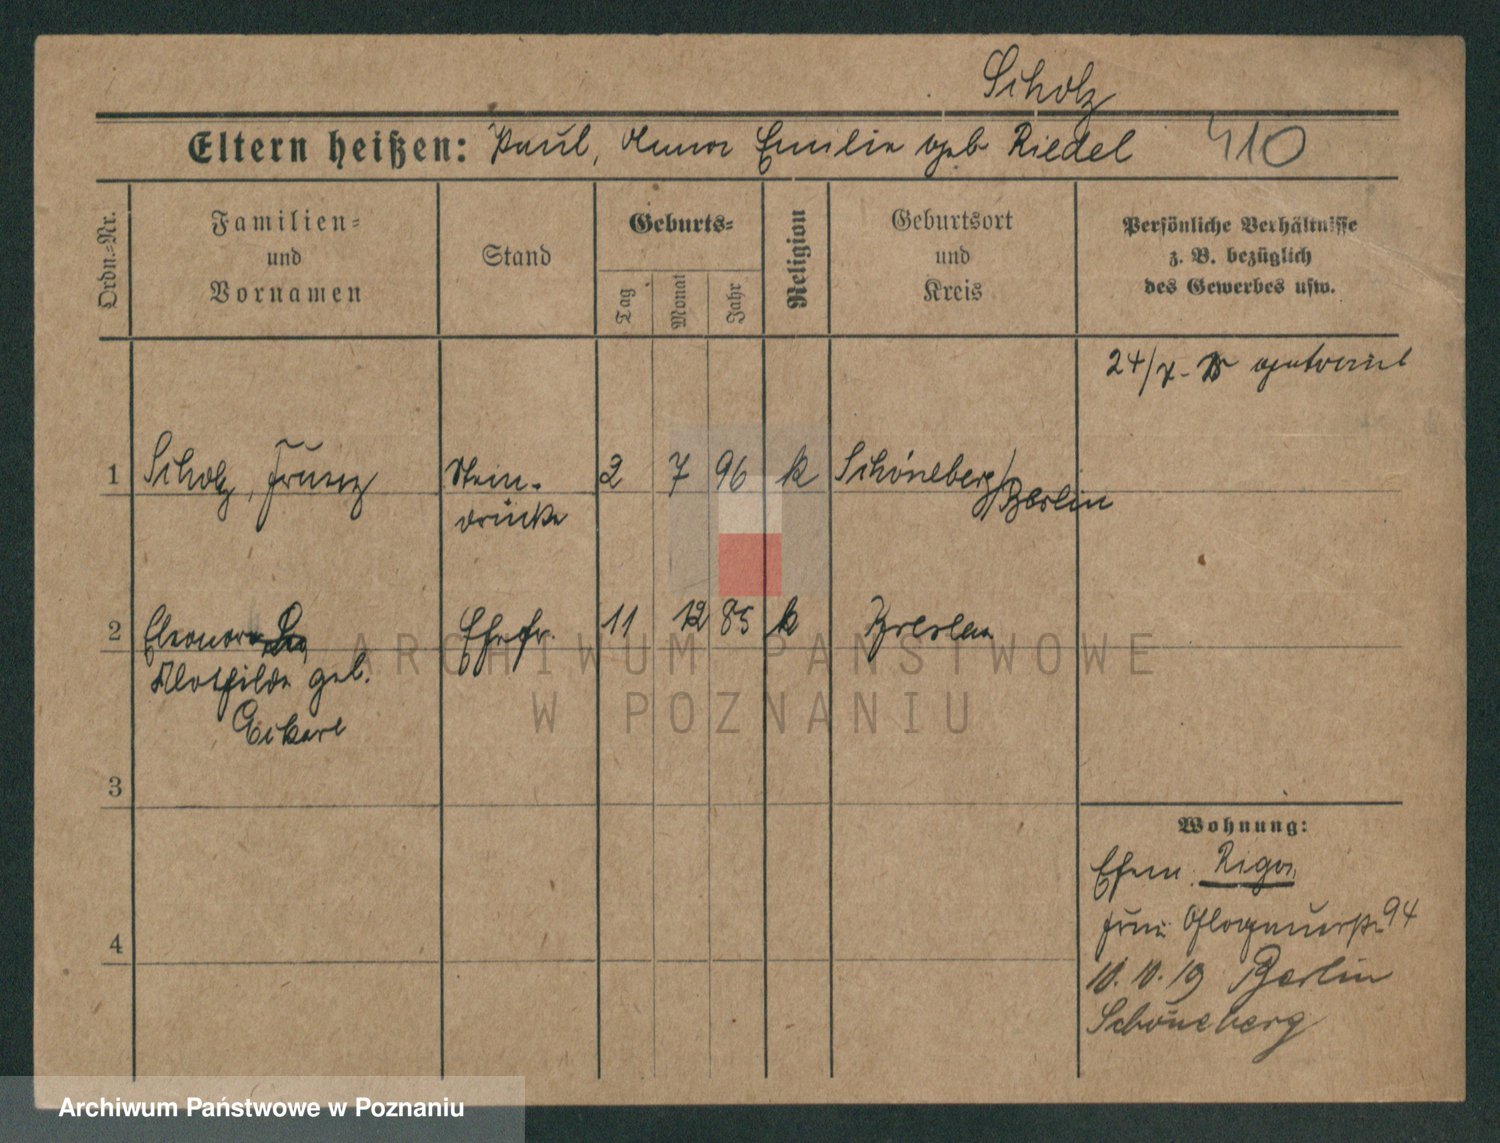 Scholz
Eltern heißen: Paul, Anna Emilie geb Riedel 410
Ordn.=Nr.
Familien=
und
Vornamen
Stand
Geburts=
Tag
Monat
Jahr
Religion
Geburtsort
und
Kreis
Persönliche Verhältnisse
z. B. bezüglich
des Gewerbes usw.
24/
getraut
1 Scholz, Franz Stein- 2 7 96 k Schöneberg/
drucke Berlin
2 Eleonore Ehefr. 11 12 85 k Breslau
Klothilde geb.
Eckert
3
4
Wohnung:
Ehem. Riga
Glogauerstr 94
10. 10. 19 Berlin
Schöneberg
ARCHIWUM PAŃSTWOWE
W POZNANIU
Archiwum Państwowe w Poznaniu